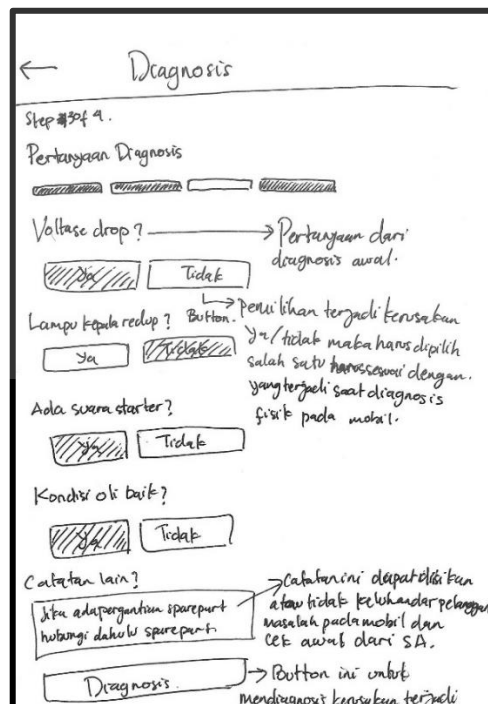 ←
Diagnosis
Step 3 of 4.
Pertanyaan Diagnosis
Voltase drop?
Pertanyaan dari
diagnosis awal.
Ya
Tidak
Button.
Lampu kepala redup?
pemilihan terjadi kerusakan
Ya/tidak maka harus dipilih
salah satu harus sesuai dengan.
yang terjadi saat diagnosis
fisik pada mobil.
Ya
Tidak
Ada suara starter?
Ya
Tidak
Kondisi oli baik?
Ya
Tidak
Catatan lain?
Jika ada pergantian sparepart
hubungi dahulu sparepart.
Catatan ini dapat diisikan
atau tidak keluhan dar pelanggan
masalah pada mobil dan
cek awal dari SA.
Diagnosis.
Button ini untuk
mendiagnosis kerusakan terjadi